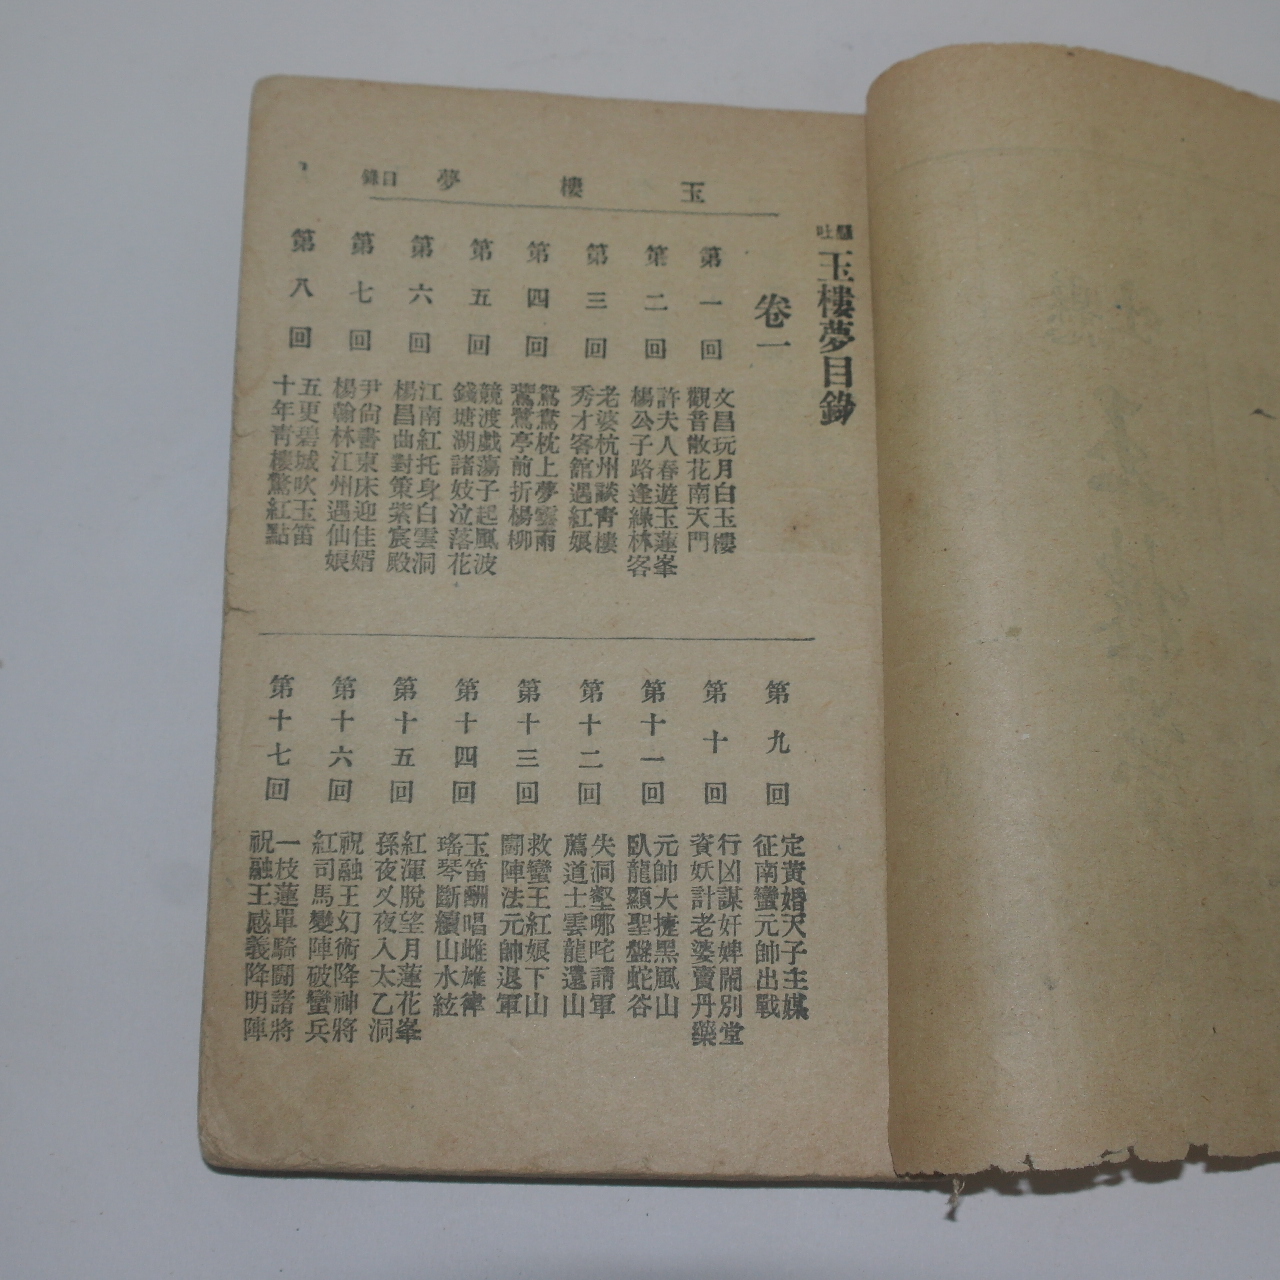 懸吐
玉樓夢目錄
玉樓夢 目錄
一
卷一
第一回
文昌玩月白玉樓
觀音散花南天門
第二回
許夫人春遊玉蓮峯
楊公子路逢綠林客
第三回
老婆杭州談靑樓
秀才客館遇紅娘
第四回
鴛鴦枕上夢雲雨
鷺鷥亭前折楊柳
第五回
競渡戲蕩子起風波
錢塘湖諸妓泣落花
第六回
江南紅托身白雲洞
楊昌曲對策紫宸殿
第七回
尹尙書東床迎佳婿
楊翰林江州遇仙娘
第八回
五更碧城吹玉笛
十年靑樓驚紅點
第九回
定黃婚天子主媒
征南蠻元帥出戰
第十回
行凶謀奸婢鬧別堂
資妖計老婆賣丹藥
第十一回
元帥大捷黑風山
臥龍顯聖盤蛇谷
第十二回
失洞壑哪咤請軍
薦道士雲龍還山
第十三回
救蠻王紅娘下山
鬪陣法元帥退軍
第十四回
玉笛酬唱雌雄律
瑤琴斷續山水絃
第十五回
紅渾脫望月蓮花峯
孫夜叉夜入太乙洞
第十六回
祝融王幻術降神將
紅司馬變陣破蠻兵
第十七回
一枝蓮單騎鬪諸將
祝融王感義降明陣